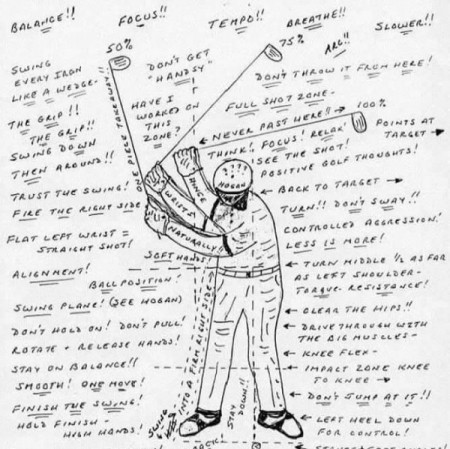 BALANCE!!
FOCUS!!
TEMPO!!
BREATHE!!
SLOWER!!
50%
75%
ARG!!
SWING
EVERY IRON
LIKE A WEDGE-
DON'T GET
"HANDSY"
DON'T THROW IT FROM HERE!
THE GRIP!!
THE GRIP!!
HAVE I
WORKED ON
THIS
ZONE?
ONE PIECE TAKEAWAY!!
FULL SHOT ZONE-
100%
NEVER PAST HERE!!
POINTS AT
TARGET
SWING DOWN
THEN AROUND!!
THINK! FOCUS! RELAX
SEE THE SHOT!
POSITIVE GOLF THOUGHTS!
TRUST THE SWING!
FIRE THE RIGHT SIDE
WRISTS
HINGE
NATURALLY!!
HOGAN
BACK TO TARGET
TURN!! DON'T SWAY!!
CONTROLLED AGGRESSION!
LESS IS MORE!
FLAT LEFT WRIST =
STRAIGHT SHOT!
SOFT HANDS!
ALIGNMENT!
BALL POSITION!
TURN MIDDLE ½ AS FAR
AS LEFT SHOULDER-
TORQUE-RESISTANCE!
SWING PLANE! (SEE HOGAN)
CLEAR THE HIPS!!
DON'T HOLD ON! DON'T PULL!
ROTATE + RELEASE HANDS!
DRIVE THROUGH WITH
THE BIG MUSCLES-
STAY ON BALANCE!!
KNEE FLEX-
SMOOTH! ONE MOVE!
IMPACT ZONE KNEE
TO KNEE
FINISH THE SWING!
DON'T JUMP AT IT!!
HOLD FINISH-
HIGH HANDS!
SWING
INTO A FIRM RIGHT SIDE
STAY
DOWN!!
LEFT HEEL DOWN
FOR CONTROL!
BACK!